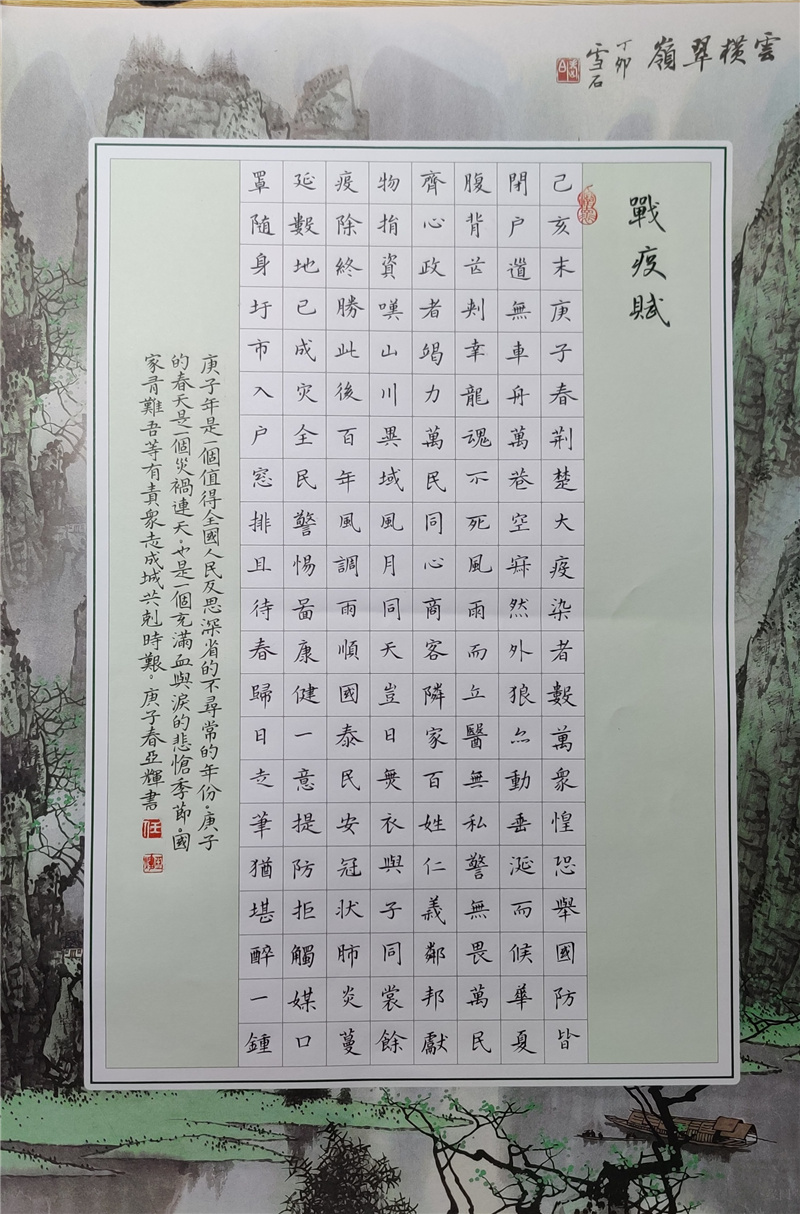 雲橫翠嶺
丁卯
雪石
戰疫賦
己亥末庚子春荆楚大疫染者數萬衆惶恐舉國防皆
閉户道無車舟萬巷空寂然外狼亦動垂涎而候華夏
腹背芒刺幸龍魂不死風雨而立醫無私警無畏萬民
齊心政者竭力萬民同心商客隣家百姓仁義鄰邦獻
物捐資嘆山川異域風月同天豈曰無衣與子同裳餘
疫除終勝此後百年風調雨順國泰民安冠狀肺炎蔓
延數地已成灾全民警惕啚康健一意提防拒觸媒口
罩随身圩市入户窓排且待春歸日走筆猶堪醉一鍾
庚子年是一個值得全國人民反思深省的不尋常的年份。庚子
的春天是一個災禍連天。也是一個充滿血與淚的悲愴季節。國
家有難吾等有責衆志成城共剋時艱。庚子春亞輝書
任